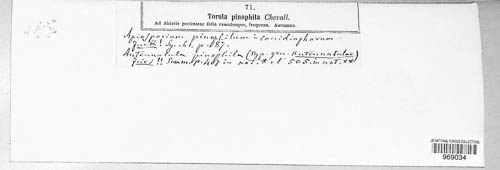 71.
Torula pinophila Chevall.
Ad Abietis pectinatae folia ramulosque, frequens. Autumno.
Apiosporium pinophilum conidiophorum
Fuck. Symb. p. 87.
Antennatula pinophila (typ. gen. Antennatulae
Fries !! Summ. p. 487 in not. * et 505. in not. **
US NATIONAL FUNGUS COLLECTIONS
969034